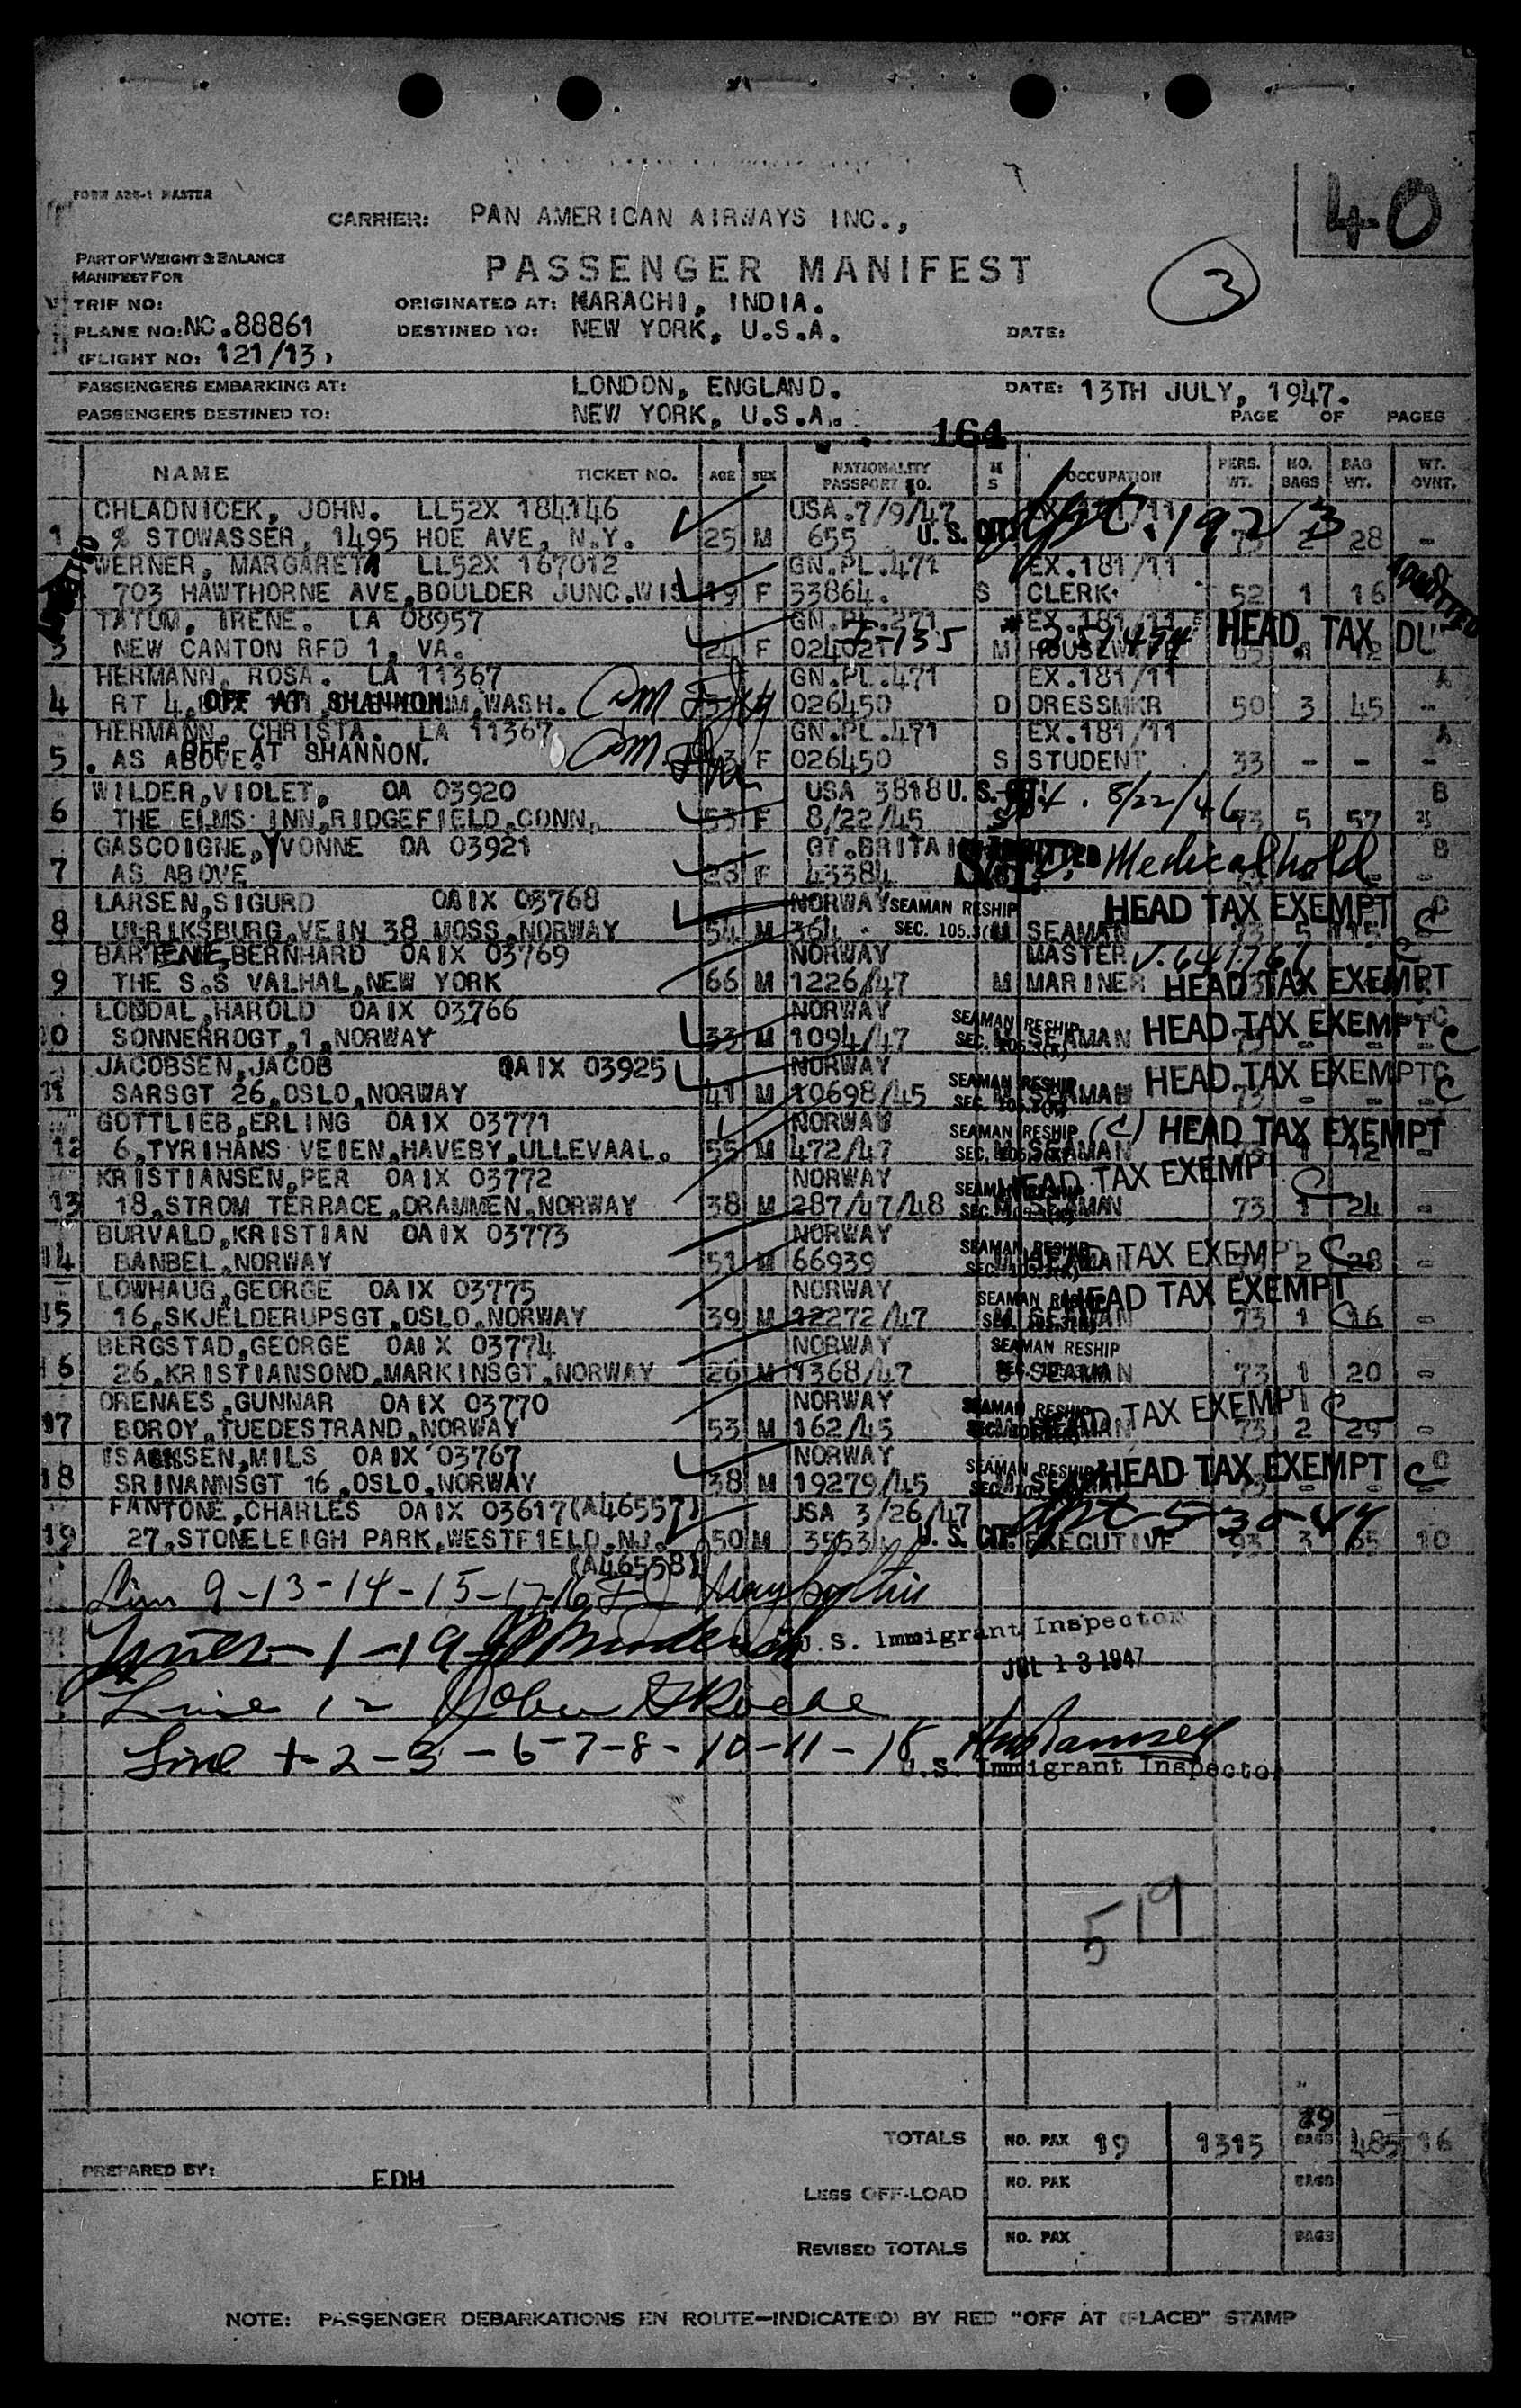 FORM ASE-1 MASTER
40
CARRIER: PAN AMERICAN AIRWAYS INC.,
PART OF WEIGHT & BALANCE
MANIFEST FOR
PASSENGER MANIFEST
3
TRIP NO:
ORIGINATED AT: KARACHI, INDIA.
PLANE NO: NC.88861
DESTINED TO: NEW YORK, U.S.A.
DATE:
(FLIGHT NO: 121/13)
PASSENGERS EMBARKING AT: LONDON, ENGLAND. DATE: 13TH JULY, 1947.
PASSENGERS DESTINED TO: NEW YORK, U.S.A. PAGE OF PAGES
164
NAME TICKET NO. AGE SEX NATIONALITY PASSPORT NO. M S OCCUPATION PERS. WT. NO. BAGS BAG WT. WT. OVNT.
CHLADNICEK, JOHN. LL52X 184146 USA.7/9/47
1 % STOWASSER, 1495 HOE AVE, N.Y. 25 M 655 U.S. CIT. 73 2 28 -
WERNER, MARGARETA LL52X 167012 GN.PL.471 EX.181/11
703 HAWTHORNE AVE,BOULDER JUNC.WIS 19 F 33864. S CLERK. 52 1 16
TATUM, IRENE. LA 08957 GN.PL.271 EX.181/11
3 NEW CANTON RFD 1, VA. 24 F 024021 M HOUSEWIFE HEAD TAX
HERMANN, ROSA. LA 11367 GN.PL.471 EX.181/11 A
4 RT 4, OFF AT SHANNON. WASH. 026450 D DRESSMKR 50 3 45 -
HERMANN, CHRISTA. LA 11367 GN.PL.471 EX.181/11 A
5 AS ABOVE. OFF AT SHANNON. F 026450 S STUDENT 33 - - -
WILDER,VIOLET, OA 03920 USA 3818 U.S. CIT. 8/22/46 B
6 THE ELMS INN,RIDGEFIELD,CONN, 53 F 8/22/45 S 73 5 57
GASCOIGNE,YVONNE OA 03921 GT.BRITAIN ADMITTED Medical hold B
7 AS ABOVE 23 F 43384
LARSEN,SIGURD OAIX 03768 NORWAY SEAMAN RESHIP HEAD TAX EXEMPT C
8 ULRIKSBURG,VEIN 38 MOSS,NORWAY 54 M 364 SEC. 105.3 M SEAMAN
BARTENE,BERNHARD OAIX 03769 NORWAY MASTER V.641767
9 THE S.S VALHAL,NEW YORK 66 M 1226/47 M MARINER HEAD TAX EXEMPT
LONDAL,HAROLD OAIX 03766 NORWAY SEAMAN RESHIP
10 SONNERROGT,1,NORWAY 33 M 1094/47 SEAMAN HEAD TAX EXEMPT C
JACOBSEN,JACOB OAIX 03925 NORWAY SEAMAN RESHIP HEAD TAX EXEMPT C
11 SARSGT 26,OSLO,NORWAY 41 M 10698/45 SEAMAN 73 - - -
GOTTLIEB,ERLING OAIX 03771 NORWAY SEAMAN RESHIP (C) HEAD TAX EXEMPT
12 6,TYRIHANS VEIEN,HAVEBY,ULLEVAAL. 55 M 472/47 M SEAMAN 1 12 -
KRISTIANSEN,PER OAIX 03772 NORWAY HEAD TAX EXEMPT
13 18,STROM TERRACE,DRAMMEN,NORWAY 38 M 287/47/48 M SEAMAN 73 1 24 -
BURVALD,KRISTIAN OAIX 03773 NORWAY SEAMAN RESHIP
14 BANBEL,NORWAY 51 M 66939 HEAD TAX EXEMPT 2 28 -
LOWHAUG,GEORGE OAIX 03775 NORWAY SEAMAN RESHIP HEAD TAX EXEMPT
15 16,SKJELDERUPSGT,OSLO,NORWAY 39 M 12272/47 M SEAMAN 73 1 16 -
BERGSTAD,GEORGE OAIX 03774 NORWAY SEAMAN RESHIP
16 26,KRISTIANSOND,MARKINSGT,NORWAY 26 M 1368/47 S SEAMAN 73 1 20 -
ORENAES,GUNNAR OAIX 03770 NORWAY SEAMAN RESHIP HEAD TAX EXEMPT
17 BOROY,TUEDESTRAND,NORWAY 53 M 162/45 73 2 29 -
ISACKSEN,MILS OAIX 03767 NORWAY SEAMAN RESHIP HEAD TAX EXEMPT C
18 SRINANNSGT 16,OSLO,NORWAY 38 M 19279/45
FANTONE,CHARLES OAIX 03617(A46557) USA 3/26/47
19 27,STONELEIGH PARK,WESTFIELD.NJ. 50 M 35534 U.S. CIT. EXECUTIVE 93 3 65 10
(A46558)
9-13-14-15-17-16
1-19
U.S. Immigrant Inspector
JUL 13 1947
Line 12
Line 1-2-3-6-7-8-10-11-18 Ramsey
U.S. Immigrant Inspector
519
TOTALS NO. PAX 19 1315 29 BAGS 485 16
PREPARED BY: EDH
LESS OFF-LOAD NO. PAX BAGS
REVISED TOTALS NO. PAX BAGS
NOTE: PASSENGER DEBARKATIONS EN ROUTE—INDICATE(D) BY RED "OFF AT (PLACE)" STAMP